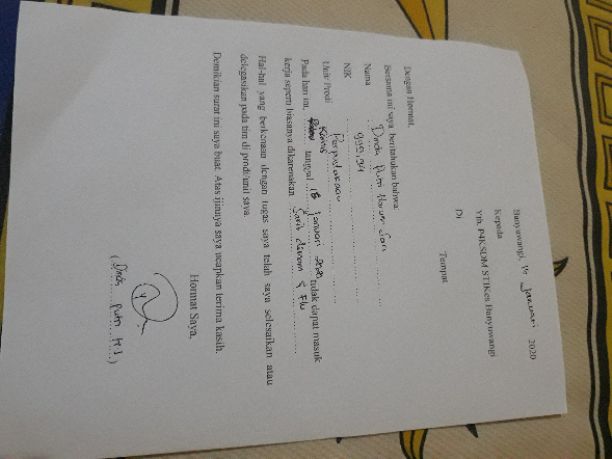 Banyuwangi, 17 Januari 2020
Kepada
Yth. P4KSDM STIKes Banyuwangi
Di
Tempat
Dengan Hormat,
Bersama ini saya beritahukan bahwa:
Nama : Dinda Putri
NIK
Unit/ Prodi : Perpustakaan
Pada hari ini, Kamis tanggal 16 Januari 2020 tidak dapat masuk
kerja seperti biasanya dikarenakan Sakit demam & Flu
Hal-hal yang berkenaan dengan tugas saya telah saya selesaikan atau
delegasikan pada tim di prodi/unit saya.
Demikian surat ini saya buat. Atas ijinnya saya ucapkan terima kasih.
Hormat Saya,
(Dinda Putri H.S)